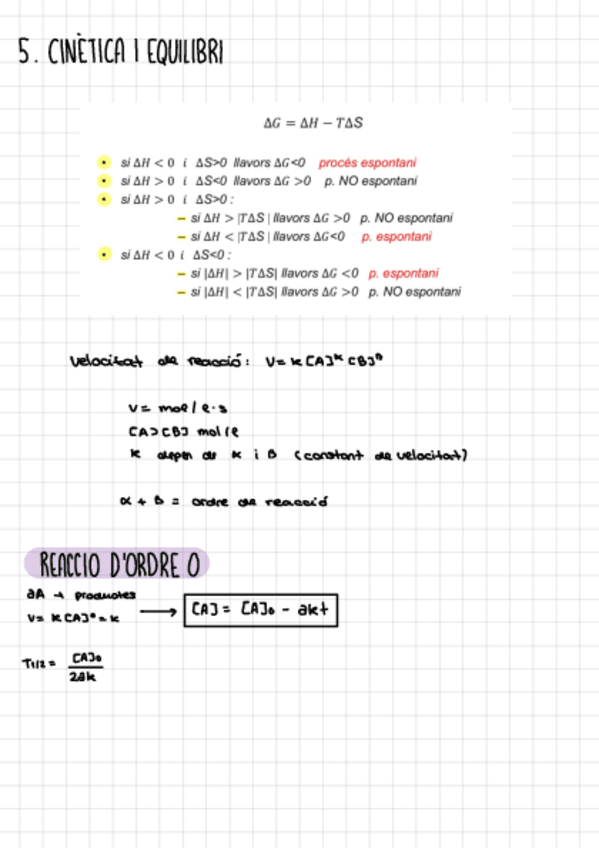 5. CINÈTICA I EQUILIBRI
ΔG = ΔH − TΔS
• si ΔH < 0 i ΔS>0 llavors ΔG<0 procés espontani
• si ΔH > 0 i ΔS<0 llavors ΔG >0 p. NO espontani
• si ΔH > 0 i ΔS>0 :
– si ΔH > |TΔS| llavors ΔG >0 p. NO espontani
– si ΔH < |TΔS| llavors ΔG<0 p. espontani
• si ΔH < 0 i ΔS<0 :
– si |ΔH| > |TΔS| llavors ΔG <0 p. espontani
– si |ΔH| < |TΔS| llavors ΔG >0 p. NO espontani
Velocitat de reacció: V= k [A]^α [B]^β
V= mol / l·s
[A] [B] mol/l
k depen de α i β (constant de velocitat)
α + β = ordre de reacció
REACCIO D'ORDRE 0
aA → productes
V= k[A]⁰ = k → [A] = [A]₀ - akt
T1/2 = [A]₀ / 2ak